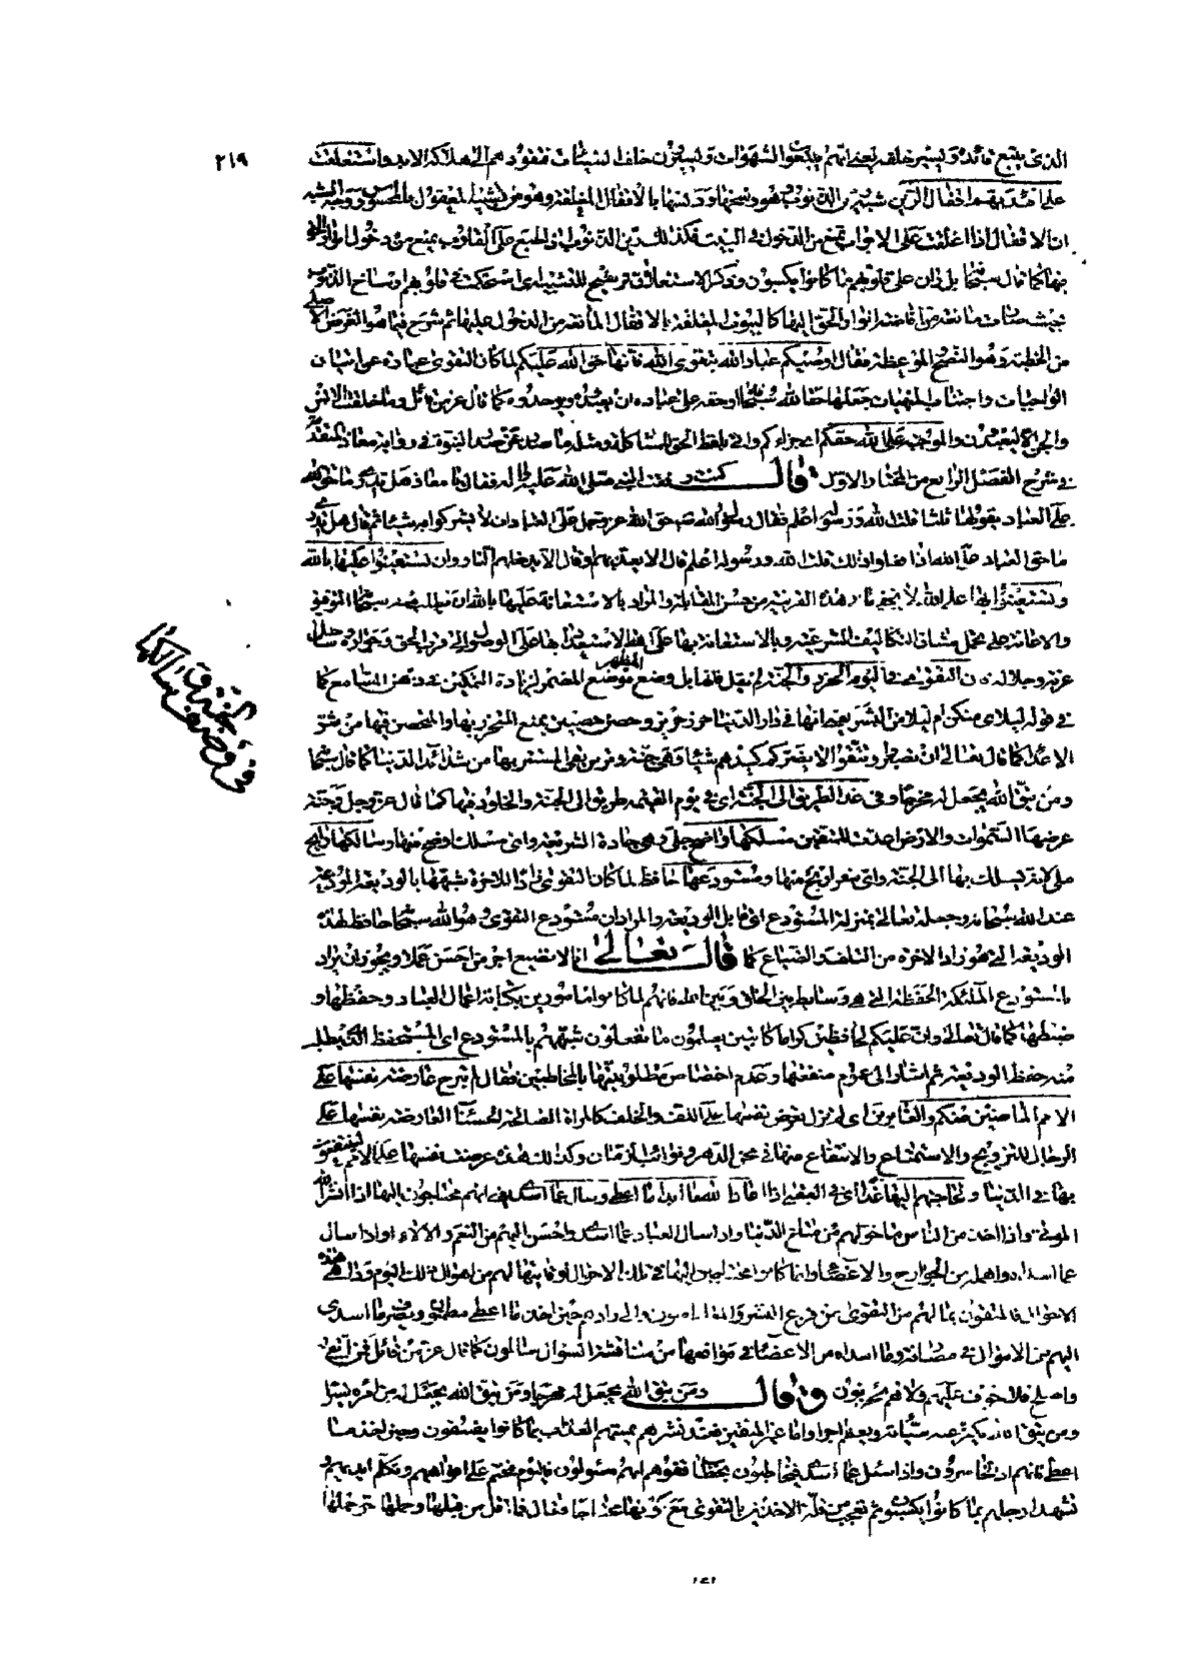 ٢١٩
الذى يتبع قائده ويسير خلفه يعنى انهم يتبعوا الشهوات ويسيرون خلف السيئات فتقودهم الى هلاكة الابد واستغلقت
على افئدتهم اقفال الرين شبه رين الذنوب وهو وسخها ودنسها بالاقفال المغلقة وهو من تشبيه المعقول بالمحسوس ووجه الشبه
ان الاقفال اذا اغلقت على الابواب تمنع من الدخول فى البيت فكذلك رين الذنوب على القلوب يمنع من دخول انوار الحق
فيها كما قال سبحانه بل ران على قلوبهم ما كانوا يكسبون وذكر الاستغلاق ترشيح للتشبيه اى استحكمت فى قلوبهم اوساخ الذنوب
بحيث صارت مانعة من افاضة انوار الحق اليها كالبيوت المغلقة بالاقفال المانعة من الدخول عليها ثم شرع فيما هو الغرض الاصلى
من الخطبة وهو النصح الموعظة فقال اوصيكم عباد الله بتقوى الله فانها حق الله عليكم لما كان التقوى عبارة عن اتيان
الواجبات واجتناب المنهيات جعلها حقا لله سبحانه وحقه على عباده ان يعبدوه ويوحدوه كما قال عز من قائل وما خلقت الانس
والجن الا ليعبدون والموجبة على الله حقكم اى جزاءكم واتى بلفظ الحق للمشاكلة ومثله ما صدر عن صدر النبوة فى رواية معاذ المتقدمة
فى شرح الفصل الرابع من المختار الاول قال كنت رفقت النبى صلى الله عليه واله فقال يا معاذ هل تدرى ما حق الله
على العباد يقولها ثلثا قلت الله ورسوله اعلم فقال رسول الله ص حق الله عز وجل على العباد ان لا يشركوا به شيئا ثم قال هل تدرى
ما حق العباد على الله اذا فعلوا ذلك قلت الله ورسوله اعلم قال لا يعذبهم وقال لا يدخلهم النار وان تستعينوا عليها بالله
وتستعينوا بها على الله لا يخفى ما فى هذه القرينة من حسن المقابلة والمراد بالاستعانة عليها بالله ان يطلب منه سبحانه التوفيق
والاعانة على تحمل مشاق التكاليف الشرعية وبالاستعانة بها على الله الاستعداد بها على الوصول الى قرب الحق وجواره ساحل
عزه وجلاله فان التقوى فى اليوم الحرز والجنة لم يقل فلفا بل وضع المظهر موضع المضمر لزيادة التمكين فى ذهن السامع كما
فى قوله ليلاى منكن ام ليلى من البشر يعنى انها فى دار الدنيا حرز حريز وحصن حصين يمنع المتحرز بها والمتحصن فيها من شر
الاعداء كما قال تعالى ان تصبروا وتتقوا لا يضركم كيدهم شيئا وهى جنة وترس يقى المستتر بها من شدائد الدنيا كما قال سبحانه
ومن يتق الله يجعل له مخرجا وفى غد الطريق الى الجنة اى فى يوم القيمة طريق الى الجنة والخلود فيها كما قال عز وجل وجنة
عرضها السموات والارض اعدت للمتقين مسلكها واضح جلى وهى جادة الشريعة واى مسلك اوضح منها وسالكها رابح
لانه يسلك بها الى الجنة واى سفر اربح منها ومستودعها حافظ لما كان التقوى زادا للاخرة شبهها بالوديعة المودعة
عند الله سبحانه وجعله تعالى بمنزلة المستودع اى قابل الوديعة والمراد ان مستودع التقوى وهو الله سبحانه حافظ لهذه
الوديعة التى هو زاد الاخرة من التلف والضياع كما قال تعالى انا لا نضيع اجر من احسن عملا ويجوز ان يراد
بالمستودع الملئكة الحفظة التى هم وسايط بين الخلق وبين الله فانهم لما كانوا مامورين بكتابة اعمال العباد وحفظها و
ضبطها كما قال تعالى وان عليكم لحافظين كراما كاتبين يعلمون ما تفعلون شبههم بالمستودع اى المستحفظ الذى يطلب
منه حفظ الوديعة ثم اشار الى عموم منفعتها وعدم اختصاص مطلوبيتها بالمخاطبين فقال لم تبرح عارضة نفسها على
الامم الماضين منكم والغابرين اى لم تزل تعرض نفسها على السلف والخلف كالمراة الصالحة الحسناء العارضة نفسها على
الرجال للتزويج والاستمتاع والانتفاع منها فى محن الدهر ونوائب الزمان وكذلك هذه عرضت نفسها على الامم لينتفعوا
بها فى الدنيا ولحاجتهم اليها غدا اى فى العقبى اذا اعاد الله ما ابدا واخذ ما اعطى وسال عما اسدى يعنى انهم محتاجون اليها اذا انشر الله
الموتى واذا اخذ من الناس ما خولهم من متاع الدنيا واذا سال العباد عما اسدى واحسن اليهم من النعم والالاء او اذا سال
عما اسداه واعطاه من الجوارح والاعضاء وانما كانوا محتاجين اليها فى تلك الاحوال لوقايتها لهم من اهوال ذلك اليوم وداهية هذه
الاحوال فالمتقون بما لهم من التقوى من فزع القبر امنون حين اخذ ما اعطى مطمئنون وبصرف ما اسدى
اليهم من الاموال فى مصارفه وما اسداه من الاعضاء فى مواقعها من مناقشة السوال سالمون كما قال عز من قائل فمن اتقى
واصلح فلا خوف عليهم ولا هم يحزنون وقال ومن يتق الله يجعل له مخرجا ومن يتق الله يجعل له من امره يسرا
ومن يتق الله يكفر عنه سيئاته ويعظم له اجرا واما غير المتقين فعند نشرهم يمسهم العذاب بما كانوا يفسقون وحين اخذ ما
اعطى فانهم اذا لخاسرون واذا سئل عما اسدى فيخاطبون بخطاب وقفوهم انهم مسئولون فاليوم نختم على افواههم وتكلمنا ايديهم و
تشهد ارجلهم بما كانوا يكسبون ثم تعجب من قلة الاخذين بالتقوى مع كونها فقال فما اقل من قبلها وحملها حق حملها
فى وصف سالكها